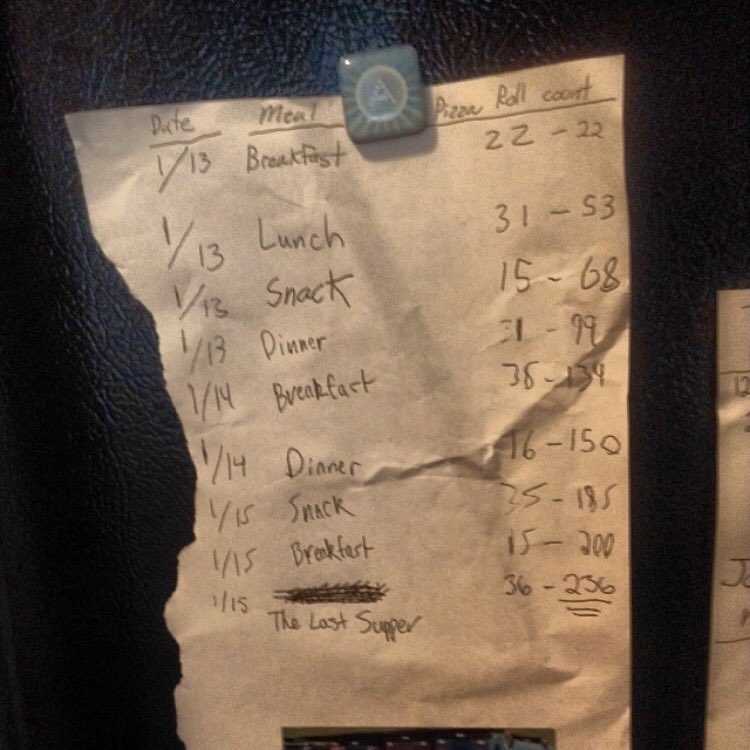 Date Meal Pizza Roll count
1/13 Breakfast 22 - 22
1/13 Lunch 31 - 53
1/13 Snack 15 - 68
1/13 Dinner 31 - 99
1/14 Breakfast 35 - 134
1/14 Dinner 16 - 150
1/15 Snack 35 - 185
1/15 Breakfast 15 - 200
1/15 36 - 236
The Last Supper